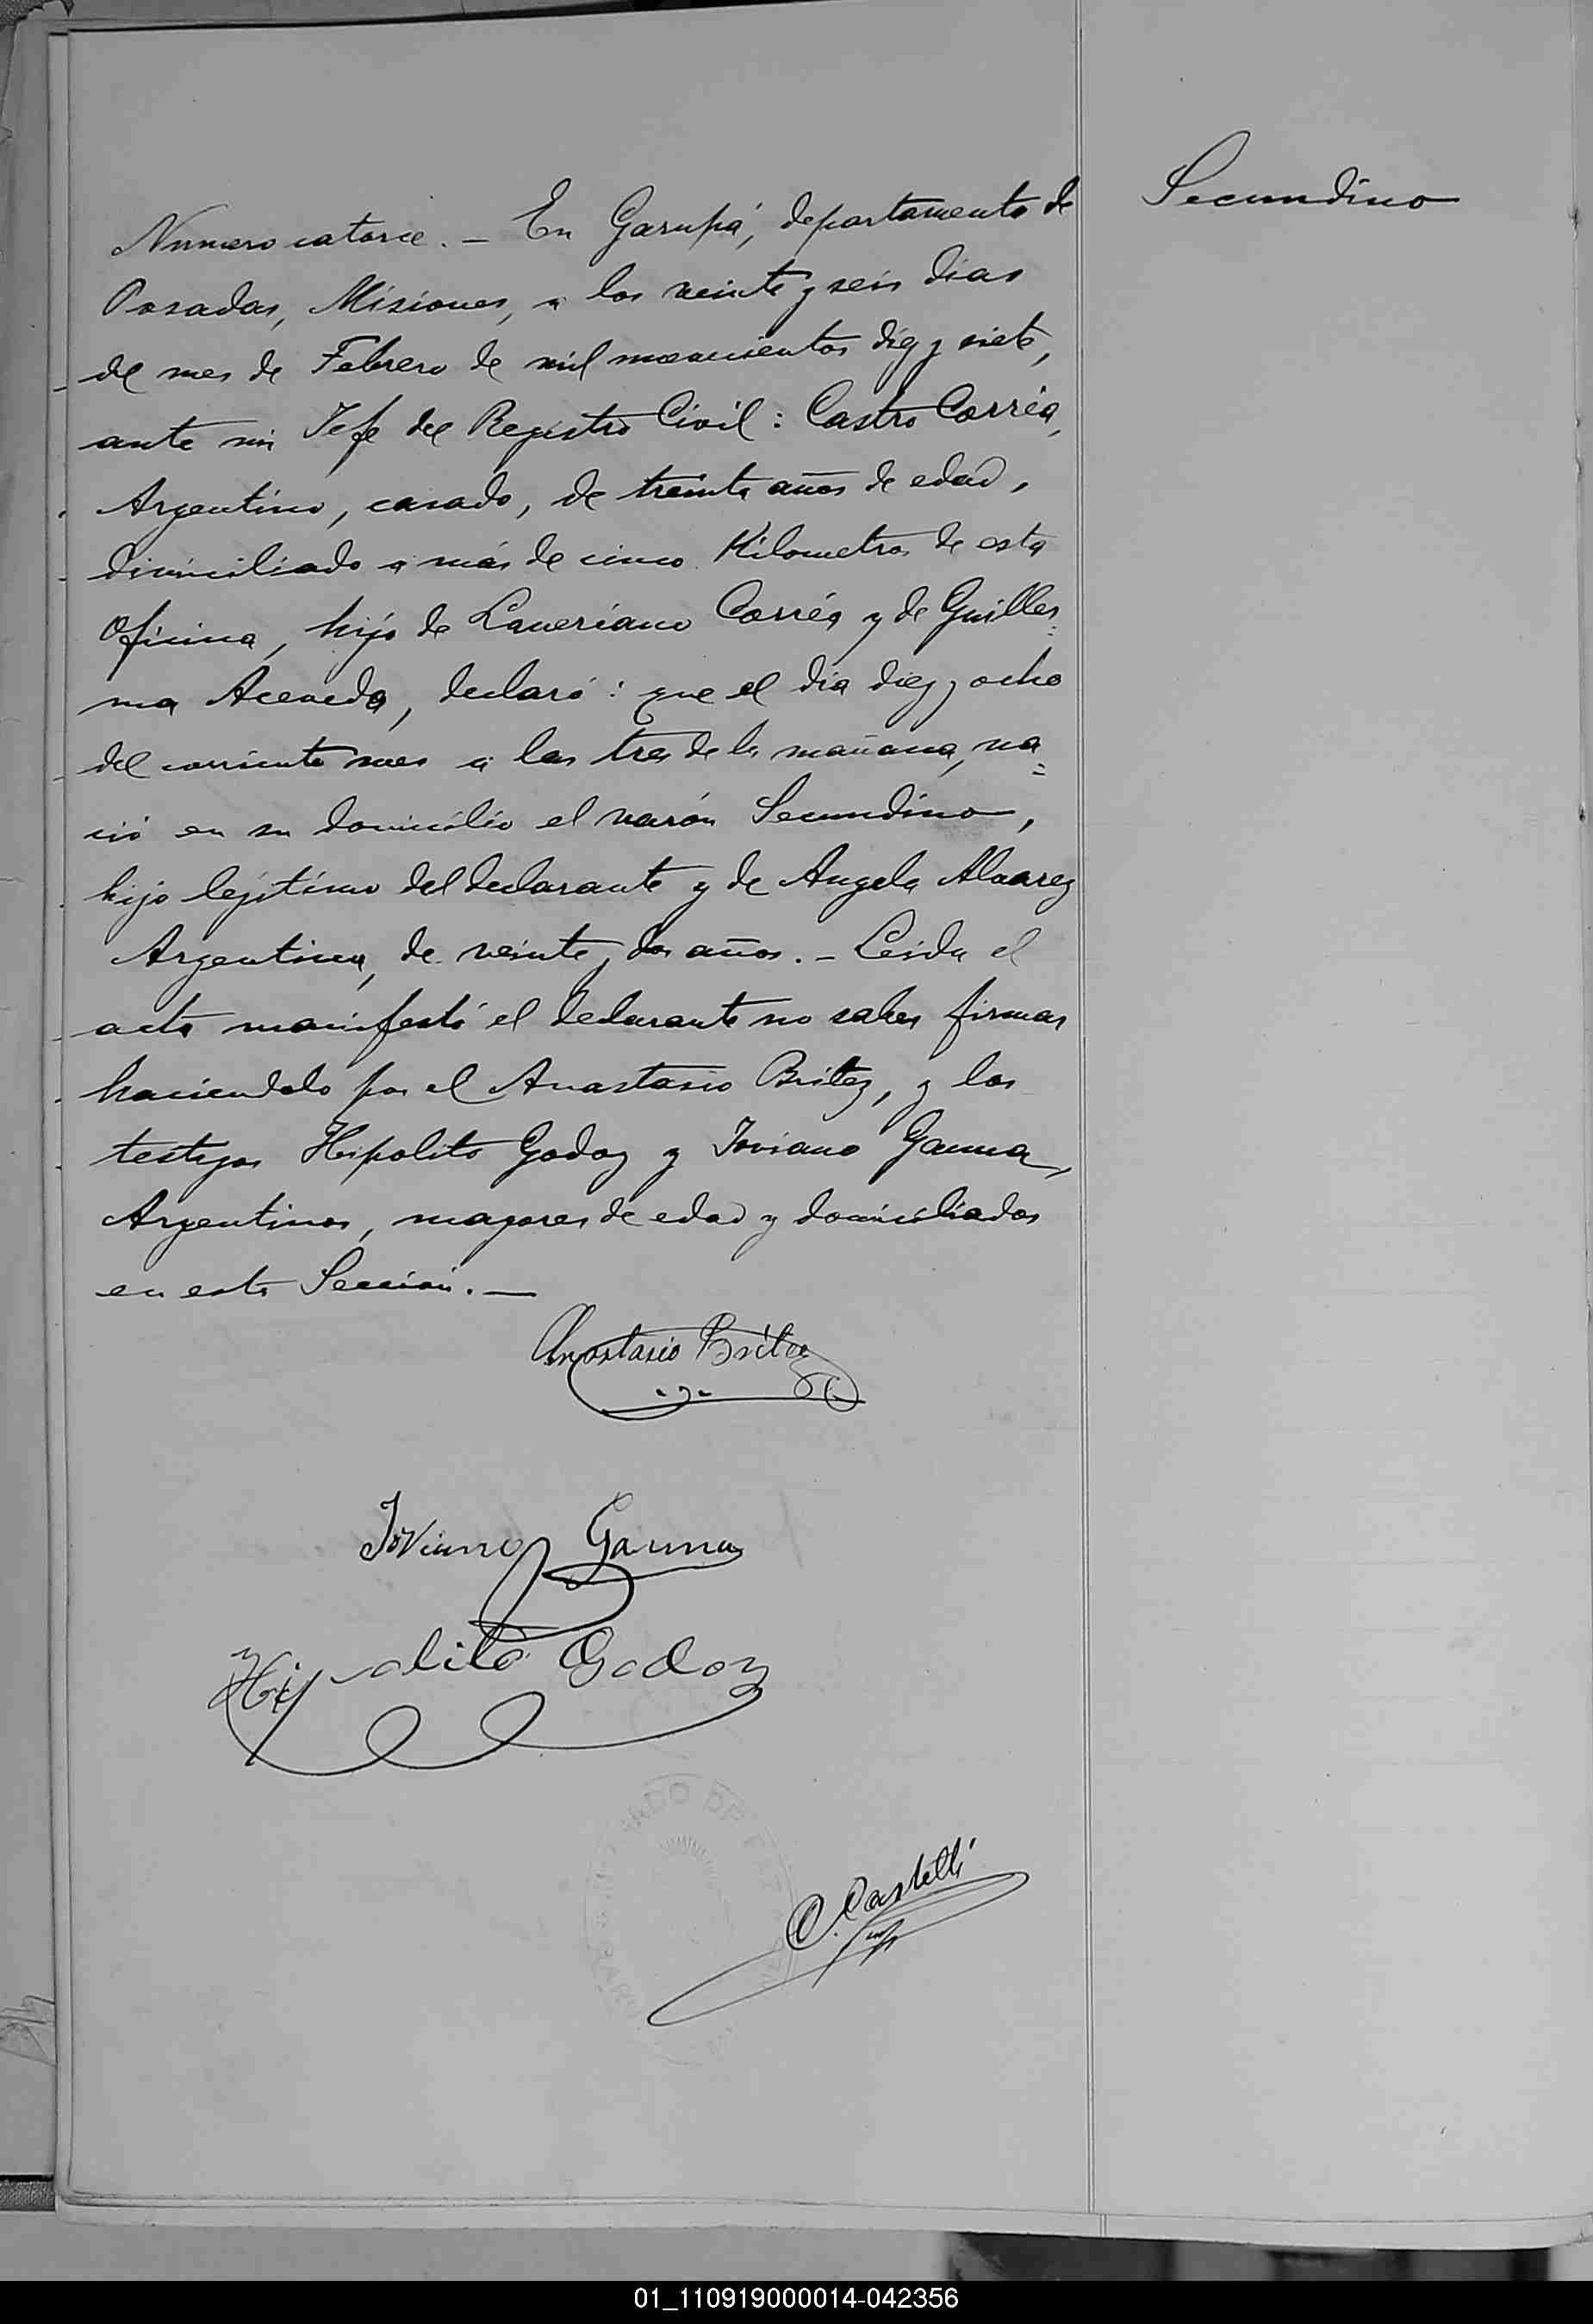 Secundino
Numero catorce. – En Garupá, departamento de
Posadas, Misiones, a los veinte y seis dias
del mes de Febrero de mil novecientos diez y siete,
ante mi Jefe del Registro Civil: Castro Corréa,
Argentino, casado, de treinta años de edad,
domiciliado a más de cinco Kilometros de esta
Oficina, hijo de Laureriano Corréa y de Guiller=
ma Acevedo, declaró: que el dia diez y ocho
del corriente mes a las tres de la mañana, na=
ció en su domicilio el varón Secundino,
hijo legítimo del declarante y de Angela Alvarez
Argentina, de veinte y dos años. – Leida el
acta manifestó el declarante no saber firmar
haciendolo por el Anastasio Britez, y los
testigos Hipolito Godoy y Joviano Gauna,
Argentinos, mayores de edad y domiciliados
en esta Sección. —
Anastasio Britez
Joviano Gauna
Hipolito Godoy
C. Castelli
01_110919000014-042356